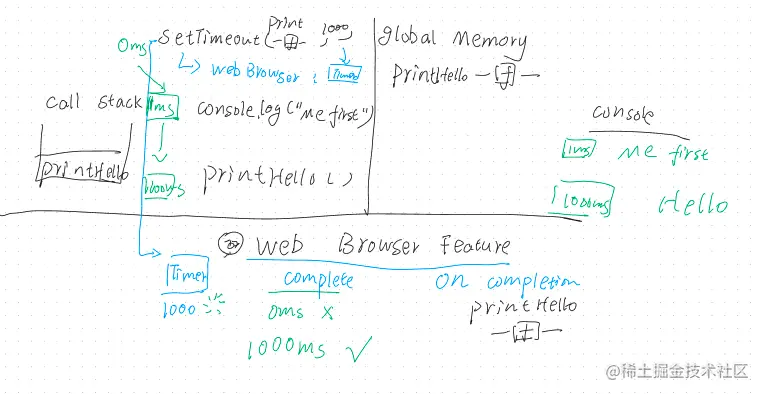 Print
0ms
SetTimeout( -[f]- , 1000)
↳ WebBrowser : Timer
global Memory
PrintHello -[f]-
call stack
1ms
console.log("Me first")
console
1ms Me first
PrintHello
1000ms
PrintHello ()
1000ms Hello
Web Browser feature
Timer
complete
on completion
1000
0ms X
printHello
-[f]-
1000ms ✓
@稀土掘金技术社区